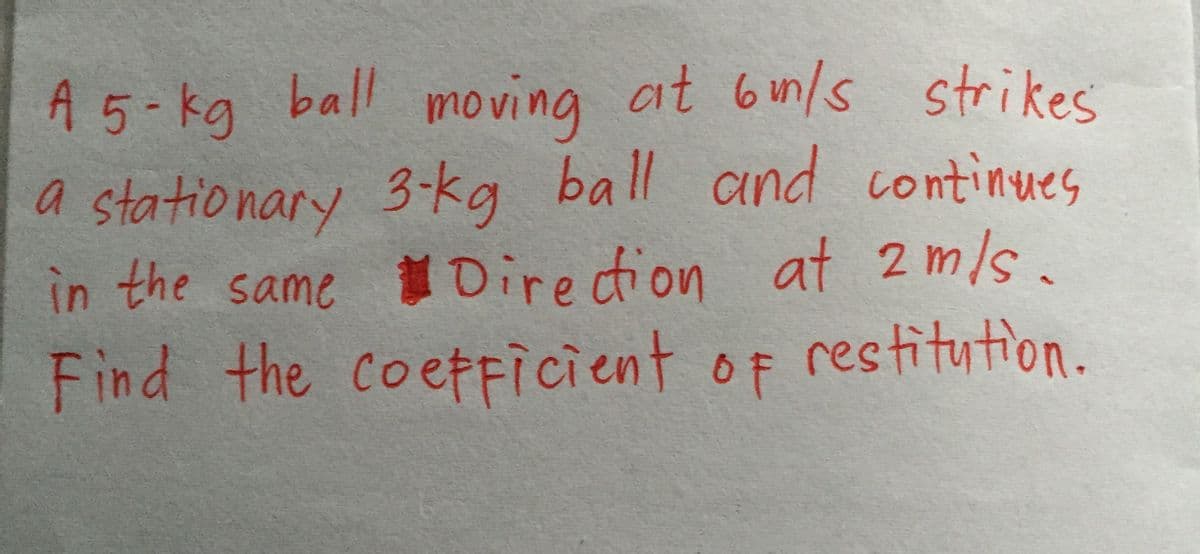 A 5-kg ball moving at 6m/s strikes
a stationary 3-kg ball and continues
in the same Direction at 2 m/s.
Find the coefficient of restitution.